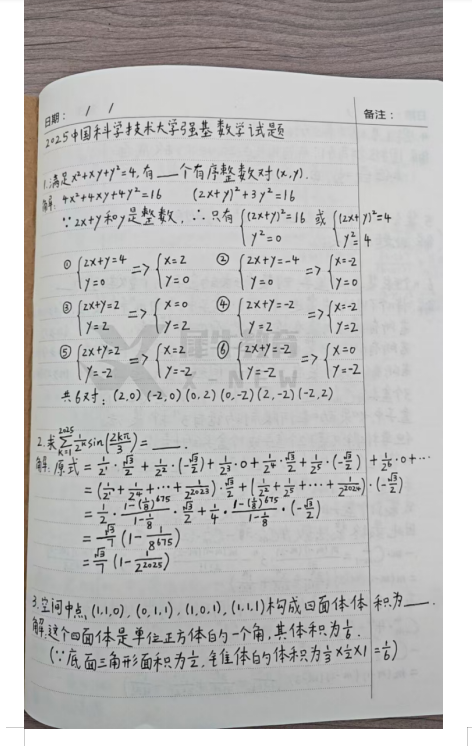 日期： / /
备注：
2025中国科学技术大学强基数学试题
1.满足x²+xy+y²=4,有___个有序整数对(x,y).
解: 4x²+4xy+4y²=16 (2x+y)²+3y²=16
∵2x+y和y是整数, ∴只有 {(2x+y)²=16 y²=0 或 {(2x+y)²=4 y²=4
① {2x+y=4 y=0 => {x=2 y=0 ② {2x+y=-4 y=0 => {x=-2 y=0
③ {2x+y=2 y=2 => {x=0 y=2 ④ {2x+y=-2 y=2 => {x=-2 y=2
⑤ {2x+y=2 y=-2 => {x=2 y=-2 ⑥ {2x+y=-2 y=-2 => {x=0 y=-2
共6对: (2,0) (-2,0) (0,2) (0,-2) (2,-2) (-2,2)
2.求∑_{k=1}^{2025} 1/2^k sin(2kπ/3)=___.
解:原式= 1/2¹·√3/2 + 1/2²·(-√3/2) + 1/2³·0 + 1/2⁴·√3/2 + 1/2⁵·(-√3/2) + 1/2⁶·0+…
=(1/2¹+1/2⁴+…+1/2^2023)·√3/2+(1/2²+1/2⁵+…+1/2^2024)·(-√3/2)
= 1/2·(1-(1/8)^675)/(1-1/8)·√3/2+1/4·(1-(1/8)^675)/(1-1/8)·(-√3/2)
= √3/7 (1-1/8^675)
= √3/7 (1-1/2^2025)
3.空间中点,(1,1,0),(0,1,1),(1,0,1),(1,1,1)构成四面体体积为___.
解:这个四面体是单位正方体的一个角,其体积为1/6.
(∵底面三角形面积为1/2,锥体的体积为1/3×1/2×1=1/6)